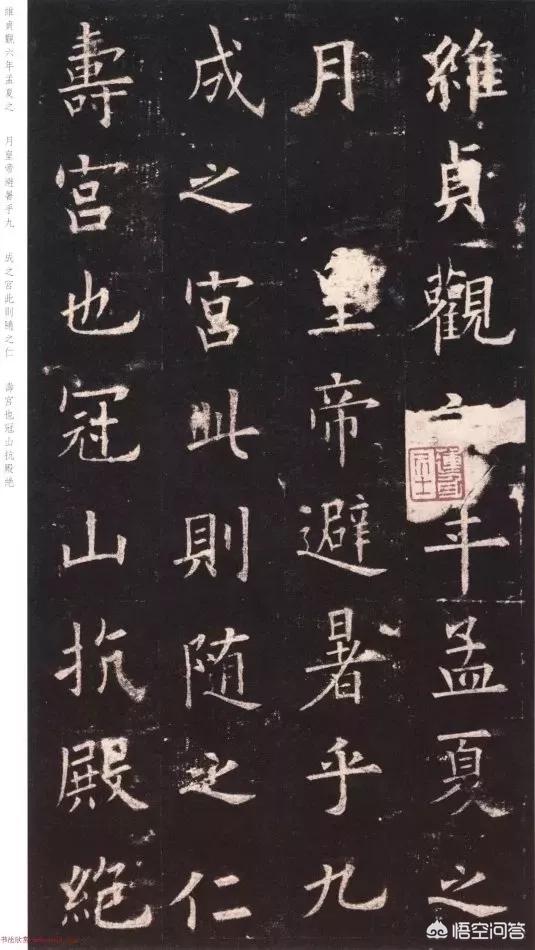 維貞觀六年孟夏之
月皇帝避暑乎九
成之宮此則随之仁
壽宮也冠山抗殿絶
維貞觀六年孟夏之 月皇帝避暑乎九 成之宮此則隨之仁 壽宮也冠山抗殿绝
书法欣赏
悟空问答